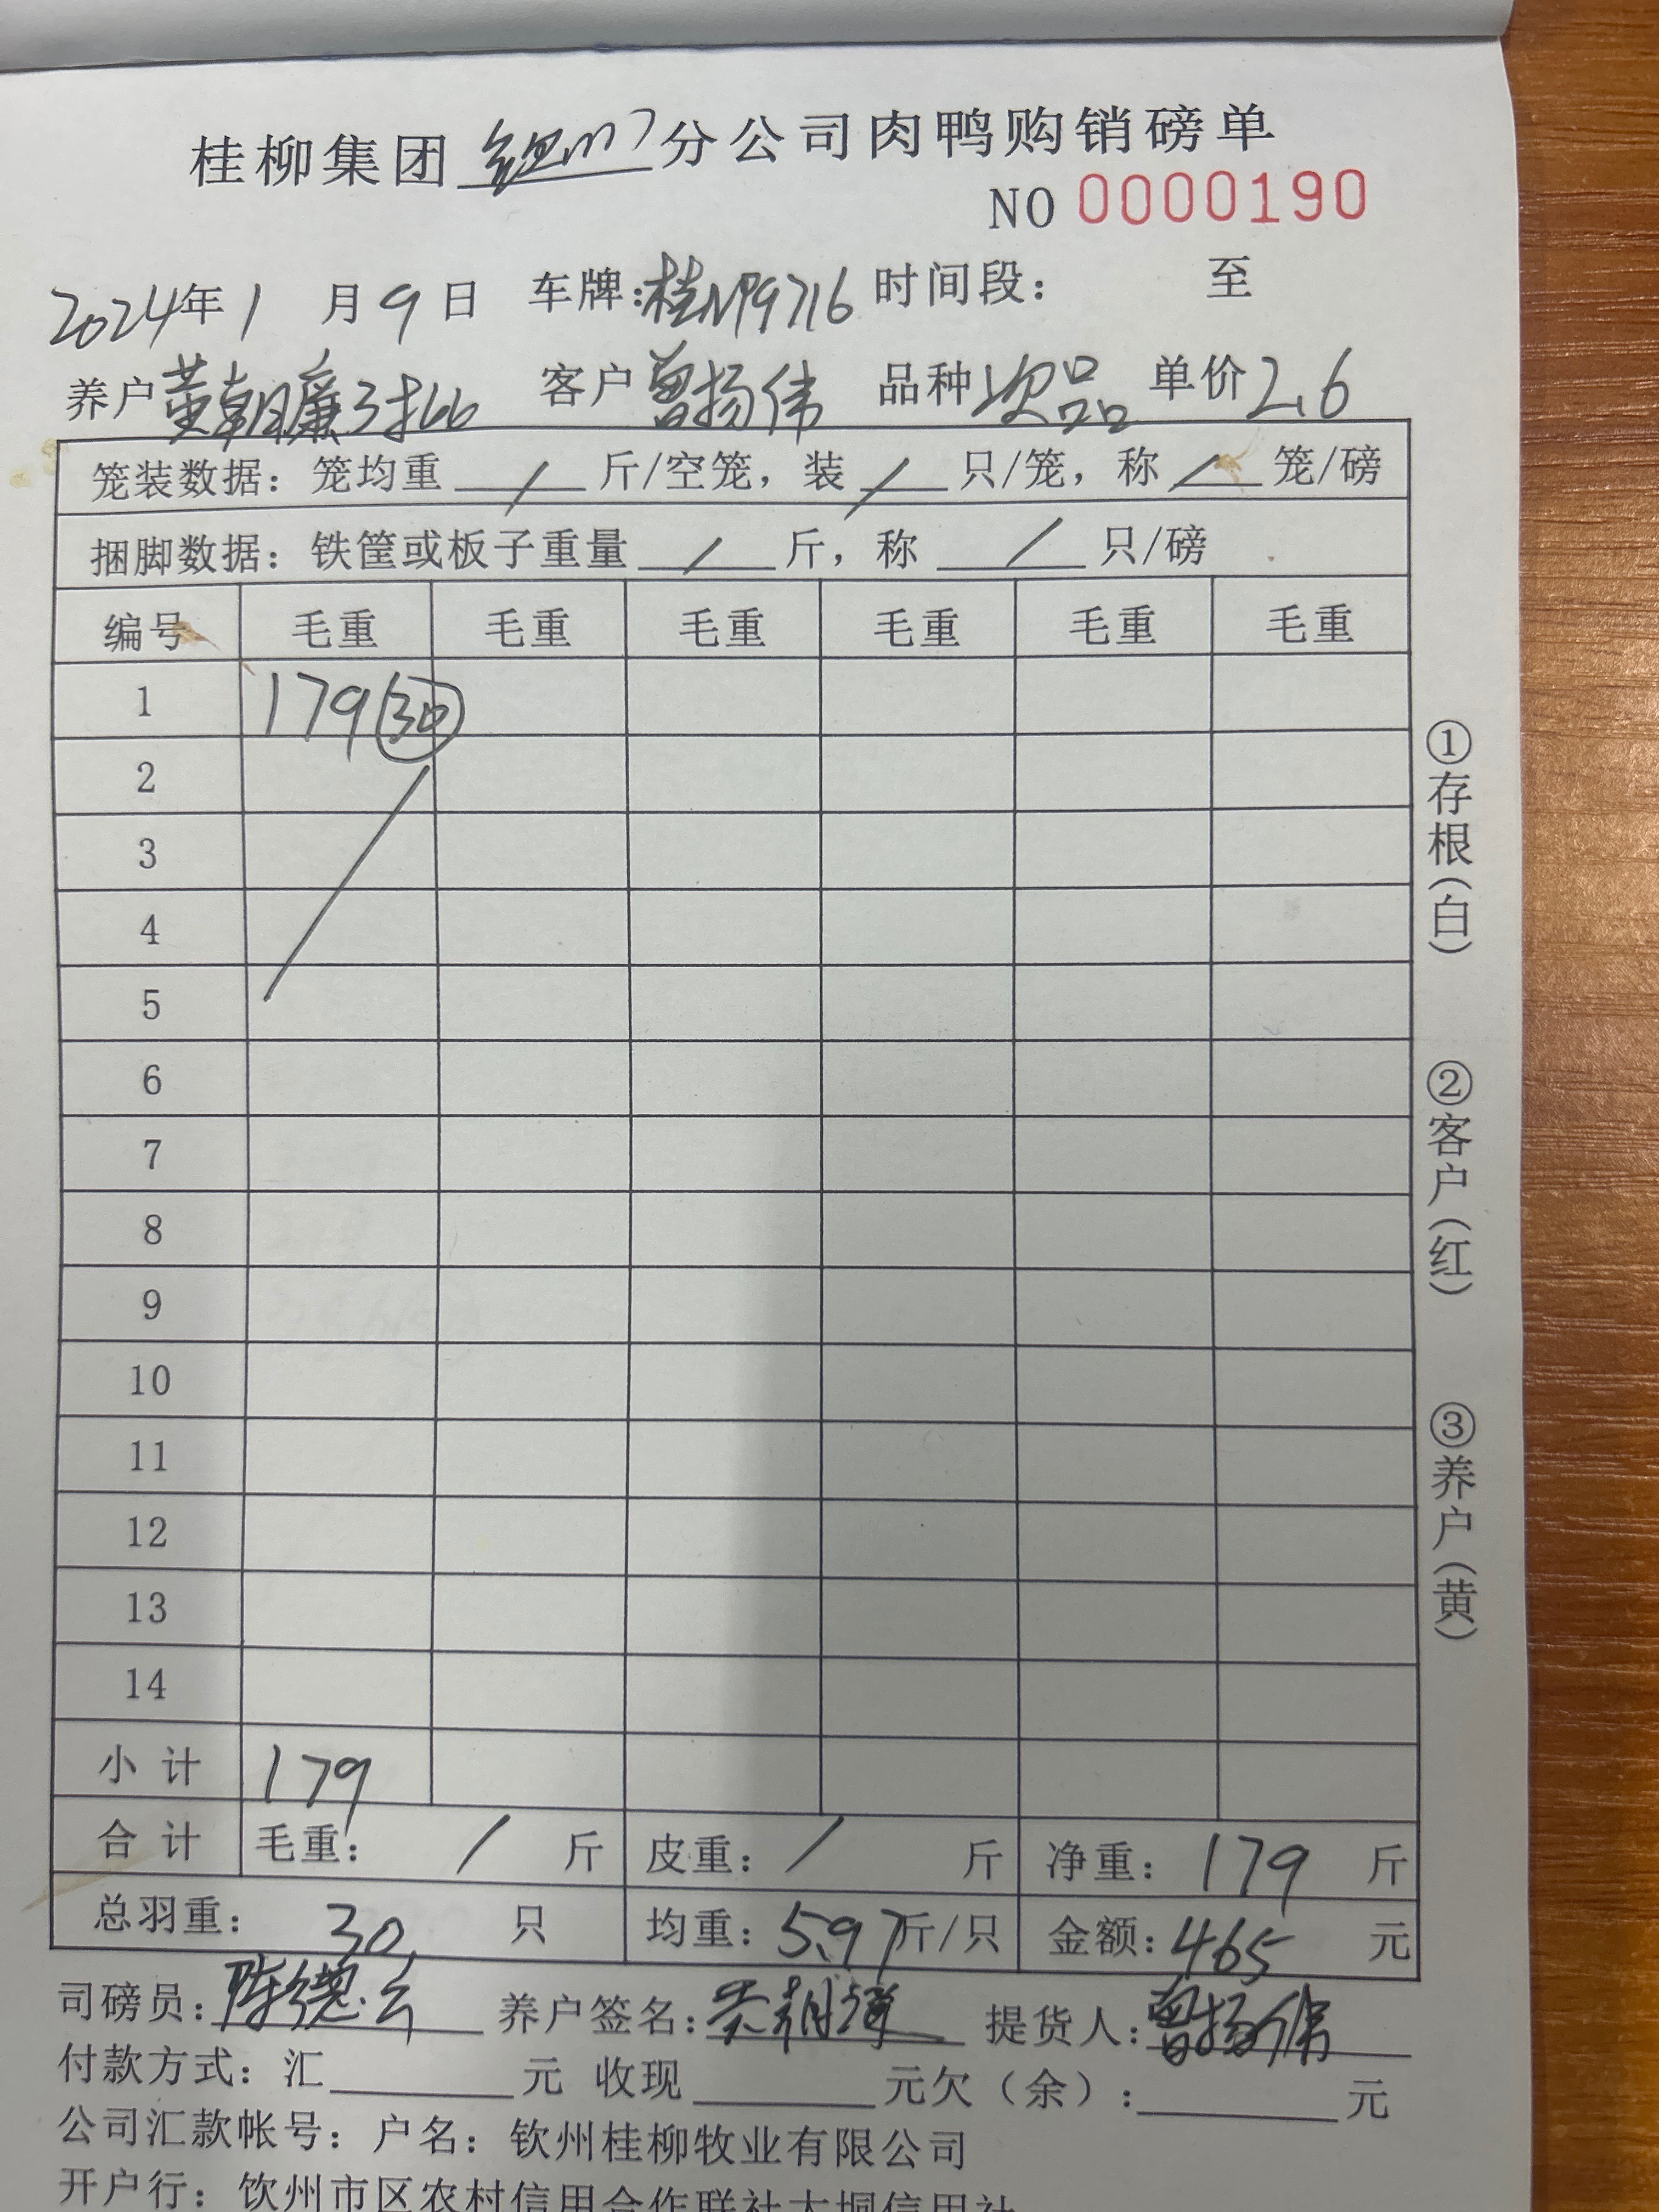 桂柳集团 分公司肉鸭购销磅单
NO 0000190
2024年1月9日 车牌:桂NP9716 时间段: 至
养户 董朝廉3批 客户 曾扬伟 品种 次品 单价 2.6
笼装数据: 笼均重 / 斤/空笼, 装 / 只/笼, 称 / 笼/磅
捆脚数据: 铁筐或板子重量 / 斤, 称 / 只/磅
编号 毛重 毛重 毛重 毛重 毛重 毛重
1 179 30
2
3
4
5
6
7
8
9
10
11
12
13
14
小计 179
合计 毛重: / 斤 皮重: / 斤 净重: 179 斤
总羽重: 30 只 均重: 5.97斤/只 金额: 465 元
司磅员: 陈德 养户签名: 提货人: 曾扬伟
付款方式: 汇 元 收现 元欠(余): 元
公司汇款帐号: 户名: 钦州桂柳牧业有限公司
开户行: 钦州市区农村信用合作联社大垌信用社
①存根(白)
②客户(红)
③养户(黄)